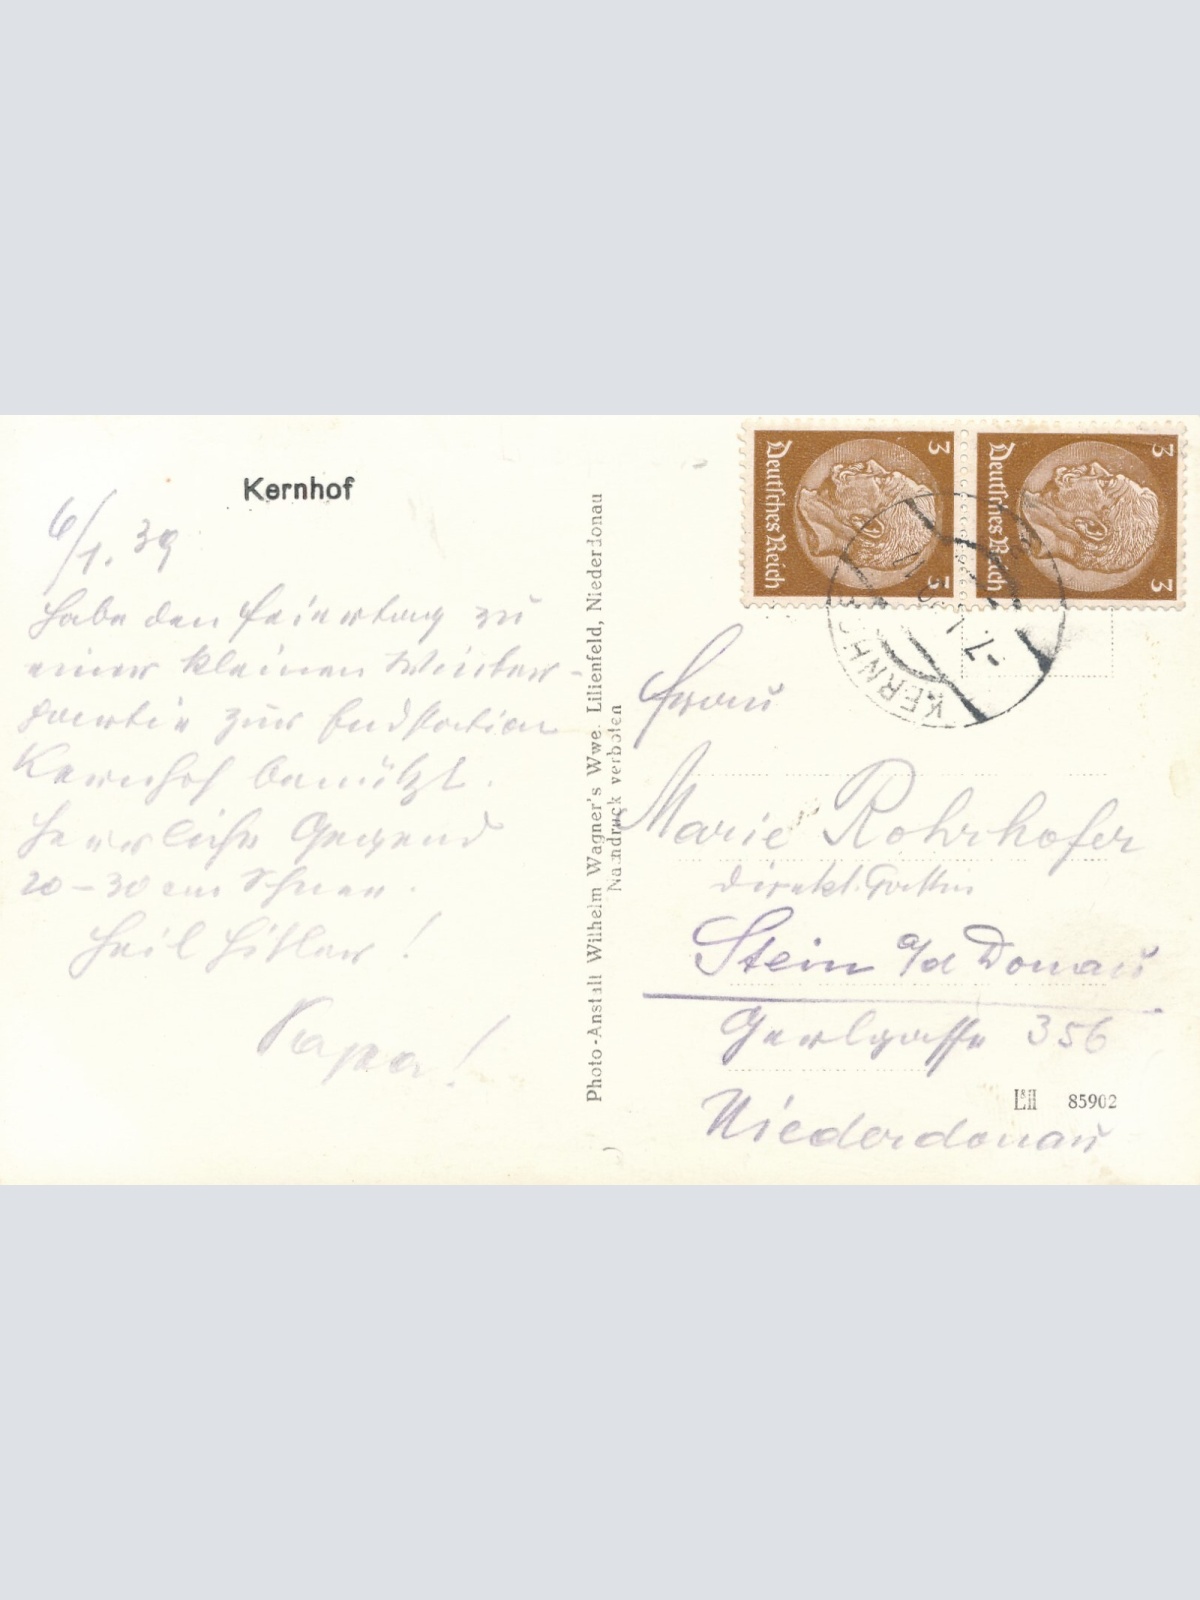 Kernhof
6/1. 39
Habe den Feiertag zu
einer kleinen Winter-
partie zur Endstation
Kernhof benützt.
Herrliche Gegend
20-30 cm Schnee.
Heil Hitler!
Papa!
Photo-Anstalt Wilhelm Wagner's Wwe. Lilienfeld, Niederdonau
Nachdruck verboten
Deutsches Reich
3
3
Deutsches Reich
3
3
KERNHOF
-7. 1. 39
Frau
Marie Rohrhofer
Direkt. Gattin
Stein a/d Donau
356
Niederdonau
85902